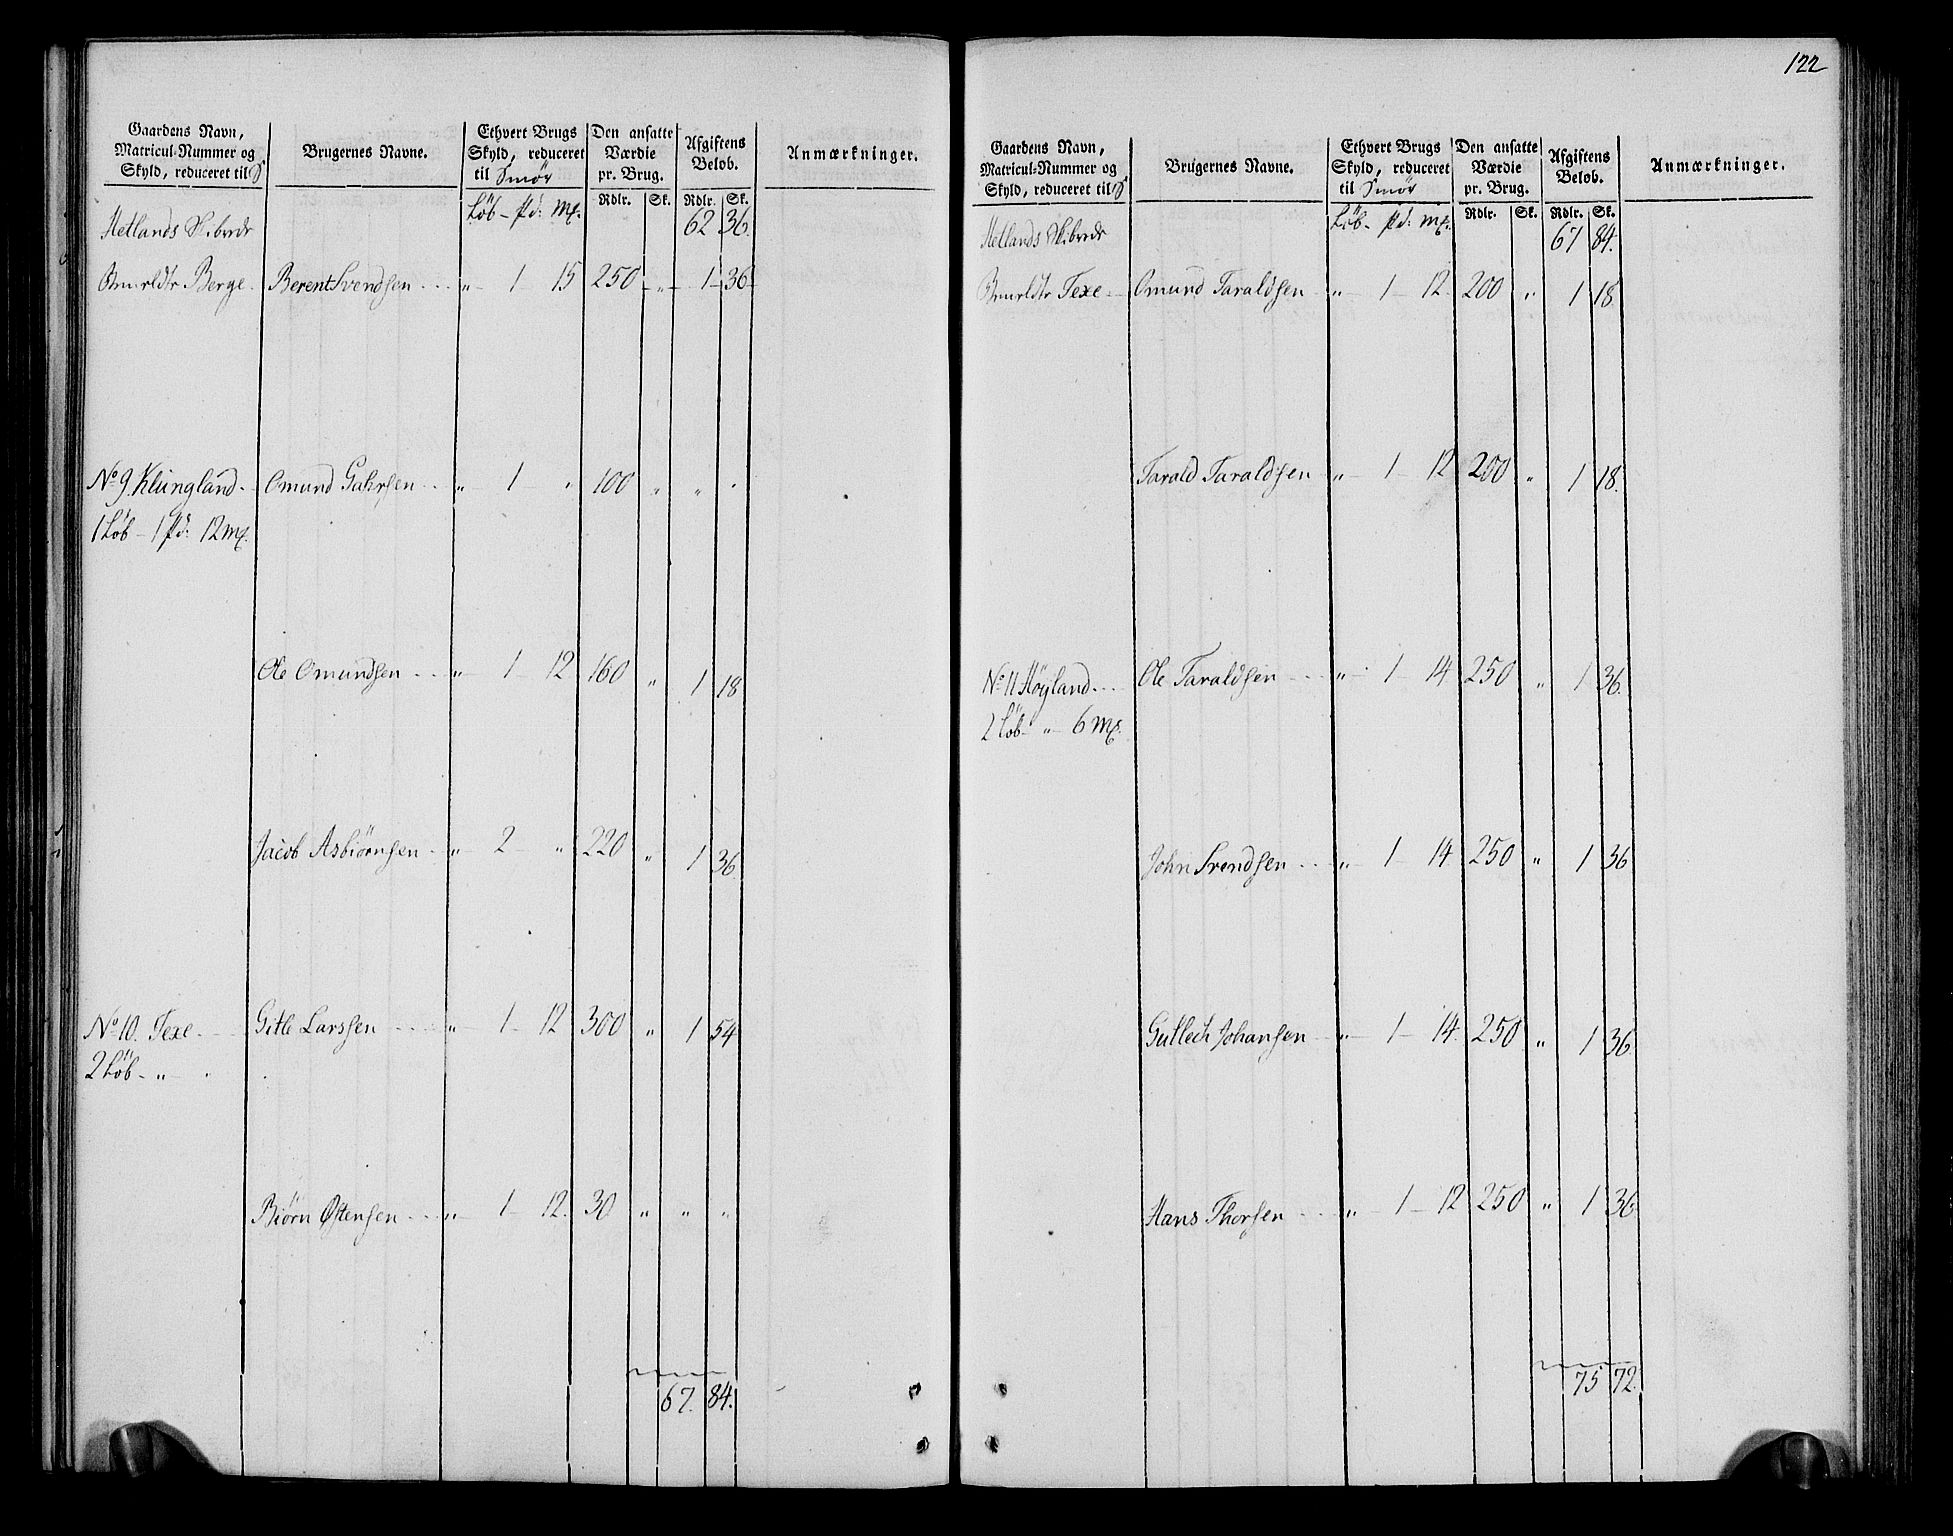 Gaardens Navn,
Matricul-Nummer og
Skyld, reduceret til
Brugernes Navne.
Ethvert Brugs
Skyld, reduceret
til Smør
Den ansatte
Værdie
pr. Brug.
Afgiftens
Beløb.
Anmærkninger.
Rdlr. Sk. Rdlr. Sk.
Løb - Pd: Mk. 62 36.
Hetlands Skibrede
Berge Berent Svendsen " 1 15 250 " 1 36
No 9. Klungland Omund Gahrsen " 1 " 100 " " "
1 Løb - 1 Pd: 12 Mk.
Ole Omundsen " 1 12 160 " 1 18
Jacob Asbiørnsen " 2 " 220 " 1 36.
No 10. Texe Gitle Larssen " 1 12 300 " 1 54
2 Løb - " "
Biørn Østensen " 1 12. 30 " " "
67. 84.
122
Gaardens Navn,
Matricul-Nummer og
Skyld, reduceret til
Brugernes Navne.
Ethvert Brugs
Skyld, reduceret
til Smør
Den ansatte
Værdie
pr. Brug.
Afgiftens
Beløb.
Anmærkninger.
Rdlr. Sk. Rdlr. Sk.
Løb - Pd: Mk. 67 84.
Hetlands Skibrede
Texe Omund Taraldsen " 1 12 200 " 1 18.
Tarald Taraldsen " 1 12 200 " 1 18.
No 11 Høyland Ole Taraldsen " 1 14 250 " 1 36.
2 Løb - " 6 Mk.
John Svendsen " 1 14 250 " 1 36
Gullech Johansen " 1 14. 250 " 1 36
Hans Thorsen " 1 12 250 " 1 36
75 72.